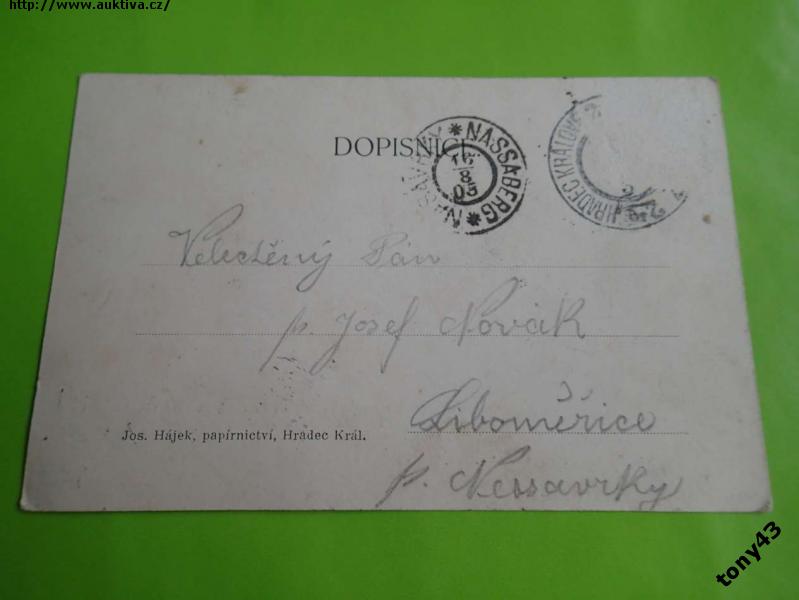 http://www.auktiva.cz/
DOPISNICE
NASAVRKY * NASSABERG *
16
8
05
HRADEC KRÁLOVÉ
Velectěný Pán
p. Josef Novák
Liboměřice
p. Nessavrky
Jos. Hájek, papírnictví, Hradec Král.
tony43